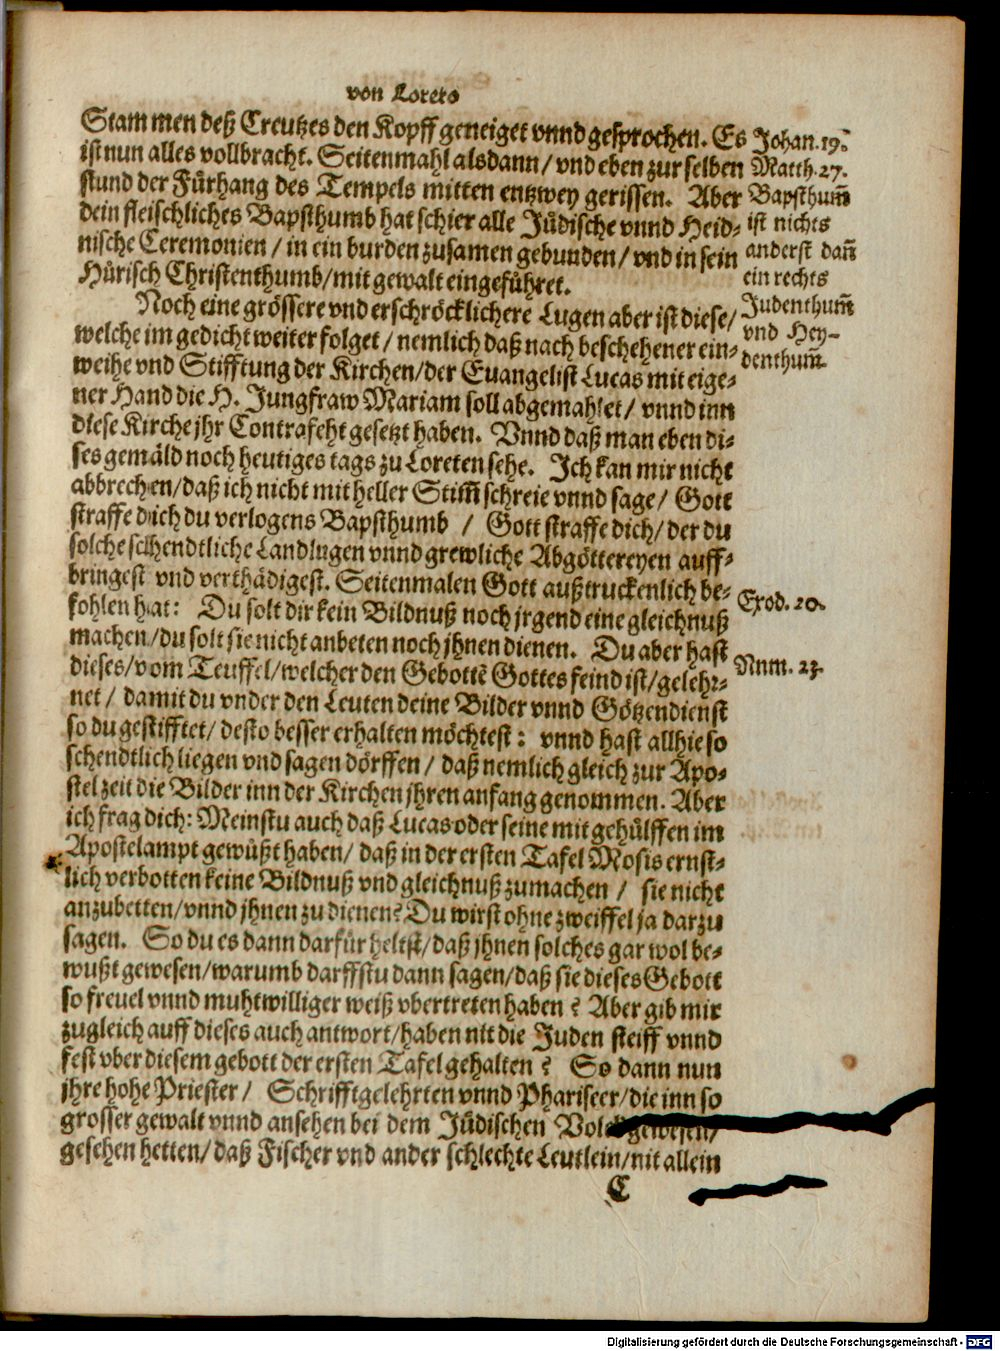 von Loreto
Stammen deß Creutzes den Kopff geneiget vnnd gesprochen. Es
ist nun alles vollbracht. Seitenmahl alsdann / vnd eben zur selben
stund der Fürhang des Tempels mitten entzwey gerissen. Aber
dein fleischliches Bapsthumb hat schier alle Jüdische vnnd Heid-
nische Ceremonien / in ein burden zusamen gebunden / vnd in sein
Hürisch Christenthumb / mit gewalt eingeführet.
Johan. 19.
Matth. 27.
Bapsthum̃
ist nichts
anderst dañ
ein rechts
Judenthum̃
vnd Hey-
denthum̃.
Noch eine grössere vnd erschröcklichere Lugen aber ist diese /
welche im gedicht weiter folget / nemlich daß nach beschehener ein-
weihe vnd Stifftung der Kirchen / der Euangelist Lucas mit eige-
ner Hand die H. Jungfraw Mariam soll abgemahlet / vnnd inn
diese Kirche jhr Contrafeht gesetzt haben. Vnnd daß man eben di-
ses gemäld noch heutiges tags zu Loreten sehe. Ich kan mir nicht
abbrechen / daß ich nicht mit heller Stim̃ schreie vnnd sage / Gott
straffe dich du verlogens Bapsthumb / Gott straffe dich / der du
solche schendtliche Landlugen vnnd grewliche Abgöttereyen auff-
bringest vnd verthädigest. Seitenmalen Gott außtruckenlich be-
fohlen hat: Du solt dir kein Bildnuß noch jrgend eine gleichnuß
machen / du solt sie nicht anbeten noch jhnen dienen. Du aber hast
dieses / vom Teuffel / welcher den Gebottẽ Gottes feind ist / gelehr-
net / damit du vnder den Leuten deine Bilder vnnd Götzendienst
so du gestifftet / desto besser erhalten möchtest: vnnd hast allhie so
schendtlich liegen vnd sagen dörffen / daß nemlich gleich zur Apo-
stel zeit die Bilder inn der Kirchen jhren anfang genommen. Aber
ich frag dich: Meinstu auch daß Lucas oder seine mitgehülffen im
Apostelampt gewüßt haben / daß in der ersten Tafel Mosis ernst-
lich verbotten keine Bildnuß vnd gleichnuß zumachen / sie nicht
anzubetten / vnnd jhnen zu dienen? Du wirst ohne zweiffel ja darzu
sagen. So du es dann darfür heltst / daß jhnen solches gar wol be-
wußt gewesen / warumb darffstu dann sagen / daß sie dieses Gebott
so freuel vnnd muhtwilliger weiß vbertreten haben? Aber gib mir
zugleich auff dieses auch antwort / haben nit die Juden steiff vnnd
fest vber diesem gebott der ersten Tafel gehalten? So dann nun
jhre hohe Priester / Schrifftgelehrten vnnd Phariseer / die inn so
grosser gewalt vnnd ansehen bei dem Jüdischen Volck gewesen /
gesehen hetten / daß Fischer vnd ander schlechte Leutlein / nit allein
Exod. 20.
Num. 23.
C
Digitalisierung gefördert durch die Deutsche Forschungsgemeinschaft - DFG